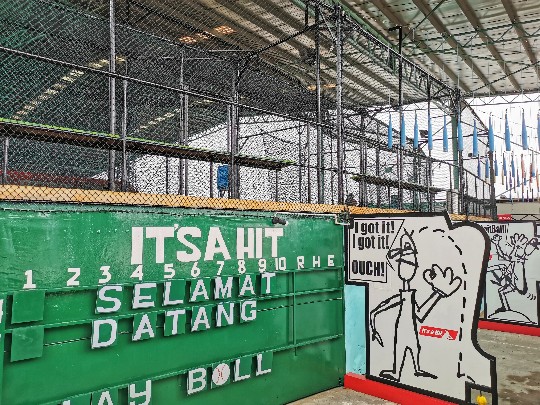 IT'S A HIT
1 2 3 4 5 6 7 8 9 10 R H E
SELAMAT
DATANG
LAY BALL
I got it!
I got it!
OUCH!
It's a Hit